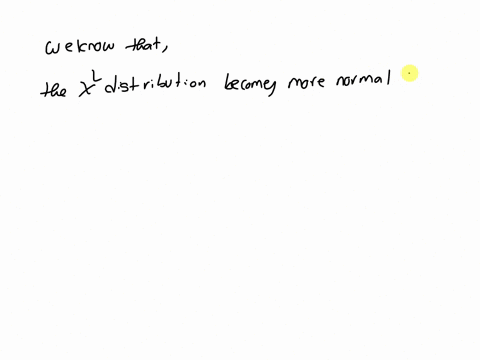 we know that,
the χ² distribution becomes more normal